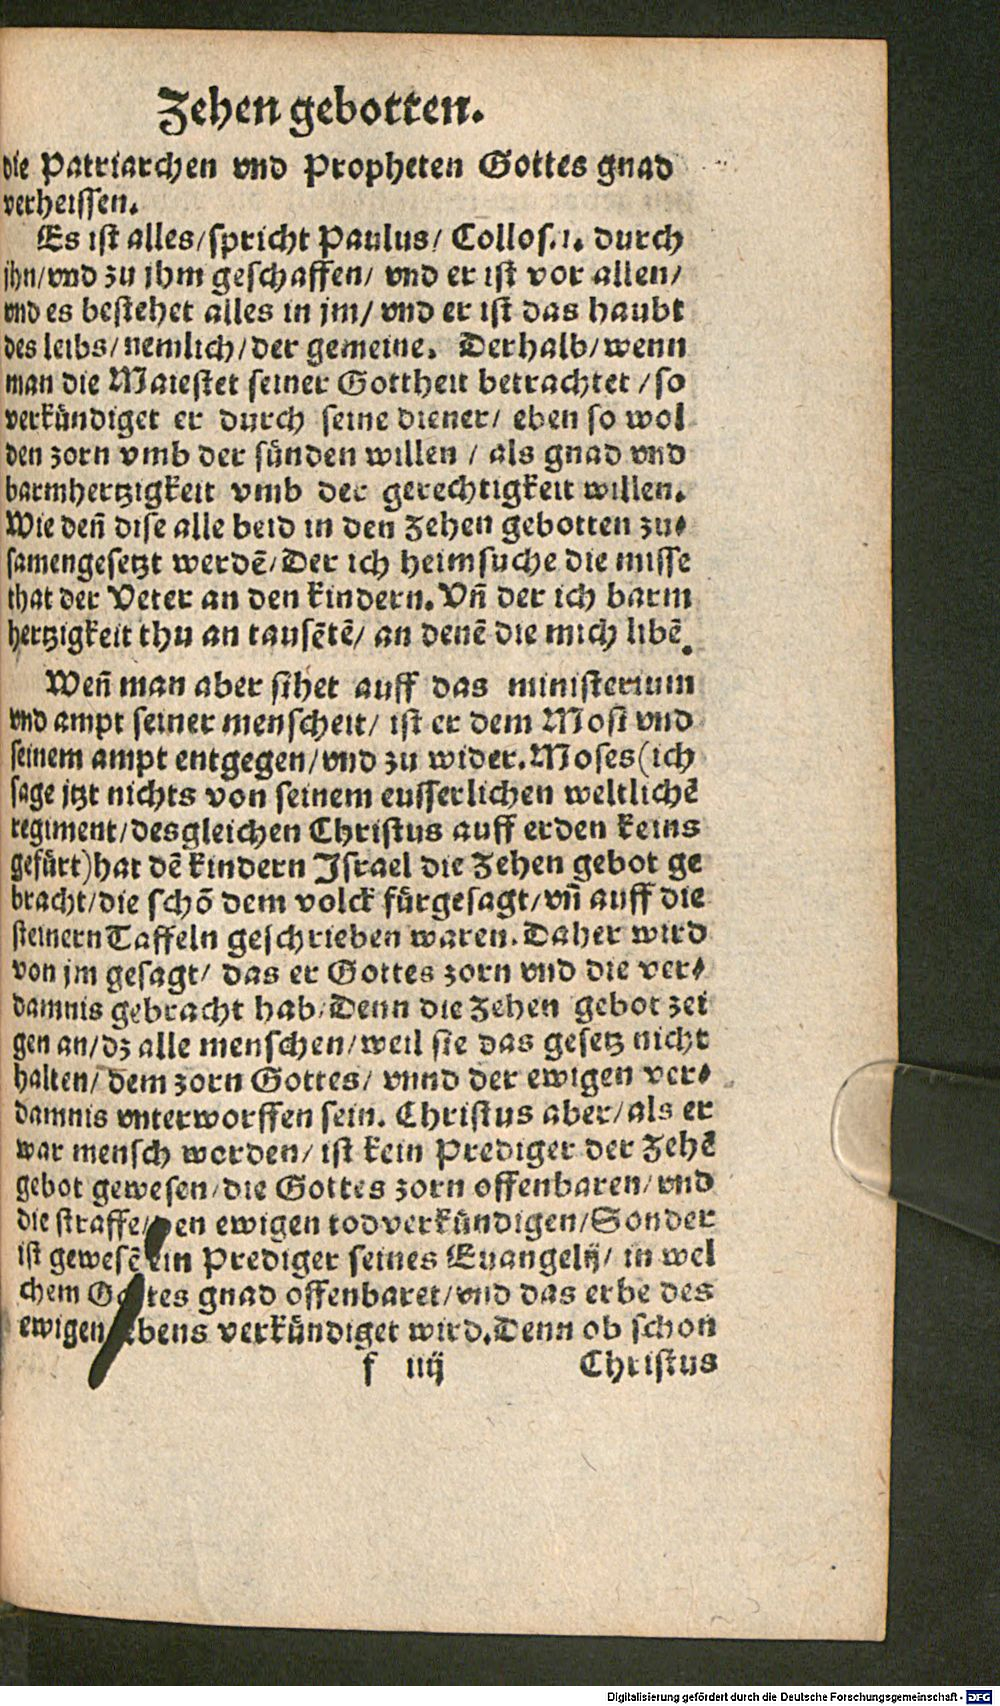 Zehen gebotten.
die Patriarchen vnd Propheten Gottes gnad
verheissen.
Es ist alles/spricht Paulus/ Collos.1. durch
jhn/vnd zu jhm geschaffen/ vnd er ist vor allen/
vnd es bestehet alles in jm/ vnd er ist das haubt
des leibs/nemlich/der gemeine. Derhalb/wenn
man die Maiestet seiner Gottheit betrachtet /so
verkündiget er durch seine diener/ eben so wol
den zorn vmb der sünden willen / als gnad vnd
barmhertzigkeit vmb der gerechtigkeit willen.
Wie den̄ dise alle beid in den Zehen gebotten zu⸗
samengesetzt werdē/Der ich heimsuche die misse
that der Veter an den kindern. Vn̄ der ich barm
hertzigkeit thu an tausētē/ an denē die mich libē.
Wen̄ man aber sihet auff das ministerium
vnd ampt seiner menscheit/ ist er dem Mosi vnd
seinem ampt entgegen/vnd zu wider. Moses (ich
sage jtzt nichts von seinem eusserlichen weltlichē
regiment/desgleichen Christus auff erden keins
gefürt) hat dē kindern Israel die Zehen gebot ge
bracht/die schō dem volck fürgesagt/vn̄ auff die
steinern Taffeln geschrieben waren. Daher wird
von jm gesagt/ das er Gottes zorn vnd die ver⸗
damnis gebracht hab/Denn die Zehen gebot zei
gen an/dz alle menschen/weil sie das gesetz nicht
halten/ dem zorn Gottes/ vnnd der ewigen ver⸗
damnis vnterworffen sein. Christus aber/als er
war mensch worden/ ist kein Prediger der Zehē
gebot gewesen/die Gottes zorn offenbaren/vnd
die straffe/ en ewigen tod verkündigen/Sonder
ist gewesē ein Prediger seines Euangelij/ in wel
chem Gottes gnad offenbaret/vnd das erbe des
ewigen lebens verkündiget wird. Denn ob schon
f iiij Christus
Digitalisierung gefördert durch die Deutsche Forschungsgemeinschaft - DFG